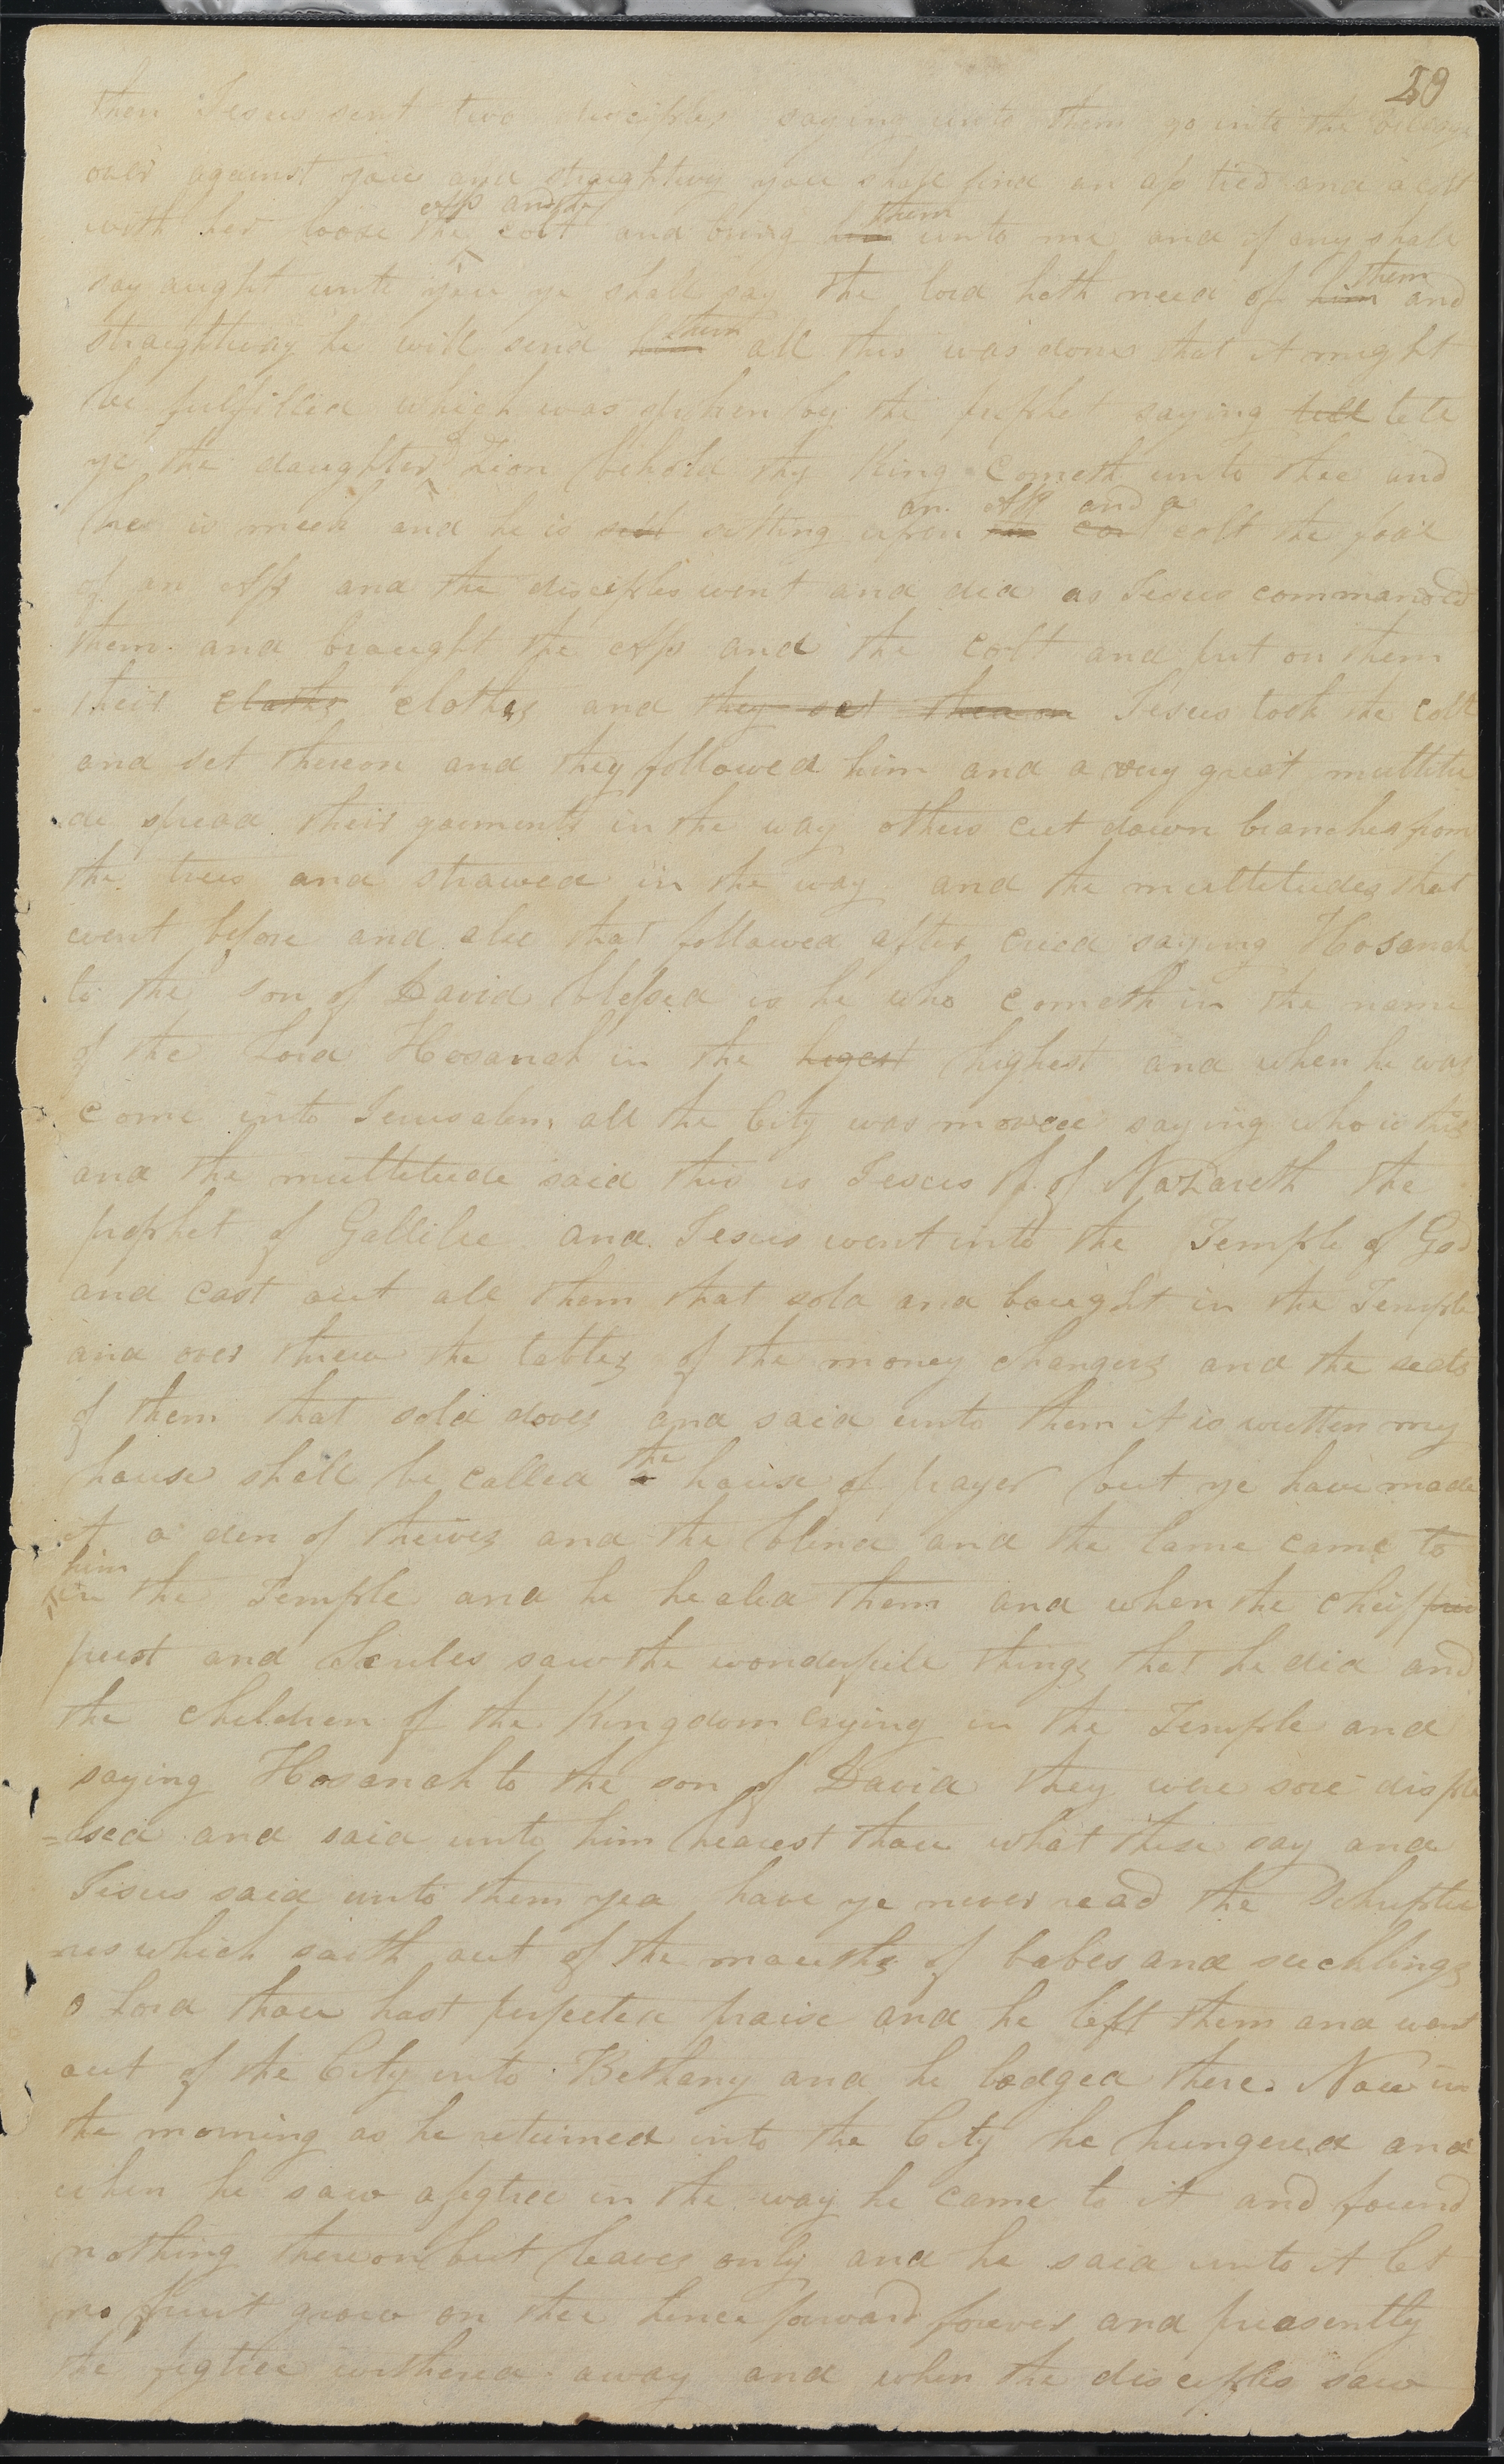 20
then Jesus sent two disciples saying unto them go into the village
over against you and straightwy you shall find an ass tied and a colt
ass and the
with her loose the colt and bring him them unto me and if any shall
say aught unto you ye shall say the lord hath need of him them and
straightway he will send him them all this was done that it might
be fulfilled which was spoken by the prophet saying tell tell
ye the daughter of Zion behold thy King cometh unto thee and
he is meek and he is sit sitting upon an ass and a colt the foal
of an Ass and the disciples went and did as Jesus commanded
them and braught the Ass and the colt and put on them
their cloths clothes and they set thereon Jesus took the colt
and set thereon and they followed him and a very great multitu
de spread their garments in the way others cut down branches from
the trees and strawed in the way and the multitudes that
went before and also that followed after cried saying Hosanah
to the son of David blessed is he who cometh in the name
of the Lord Hosanah in the higest highest and when he was
come into Jerusalem all the City was moved saying who is this
and the multitude said this is Jesus of Nazareth the
prophet of Gallilee and Jesus went into the Temple of God
and cast out all them that sold and bought in the Temple
and over threw the tables of the money changers and the seats
of them that sold doves and said unto them it is written my
the
house shall be called a house of prayer but ye have made
it a den of theives and the blind and the lame came to
him
in the Temple and he healed them and when the cheif prie
priest and Scribes saw the wonderfull things that he did and
the children of the Kingdom crying in the Temple and
saying Hosanah to the son of David they were sore disple
=ased and said unto him hearest thou what these say and
Jesus said unto them yea have ye never read the Schriptu
res which saith out of the mouths of babes and sucklings
o Lord thou hast perfected praise and he left them and went
out of the City into Bethany and he lodged there. Now in
the morning as he returned into the City he hungered and
when he saw a figtree in the way he came to it and found
nothing thereon but leaves only and he said unto it let
no fruit grow on thee hence forward forever and preasently
the figtree withered away and when the disciples saw